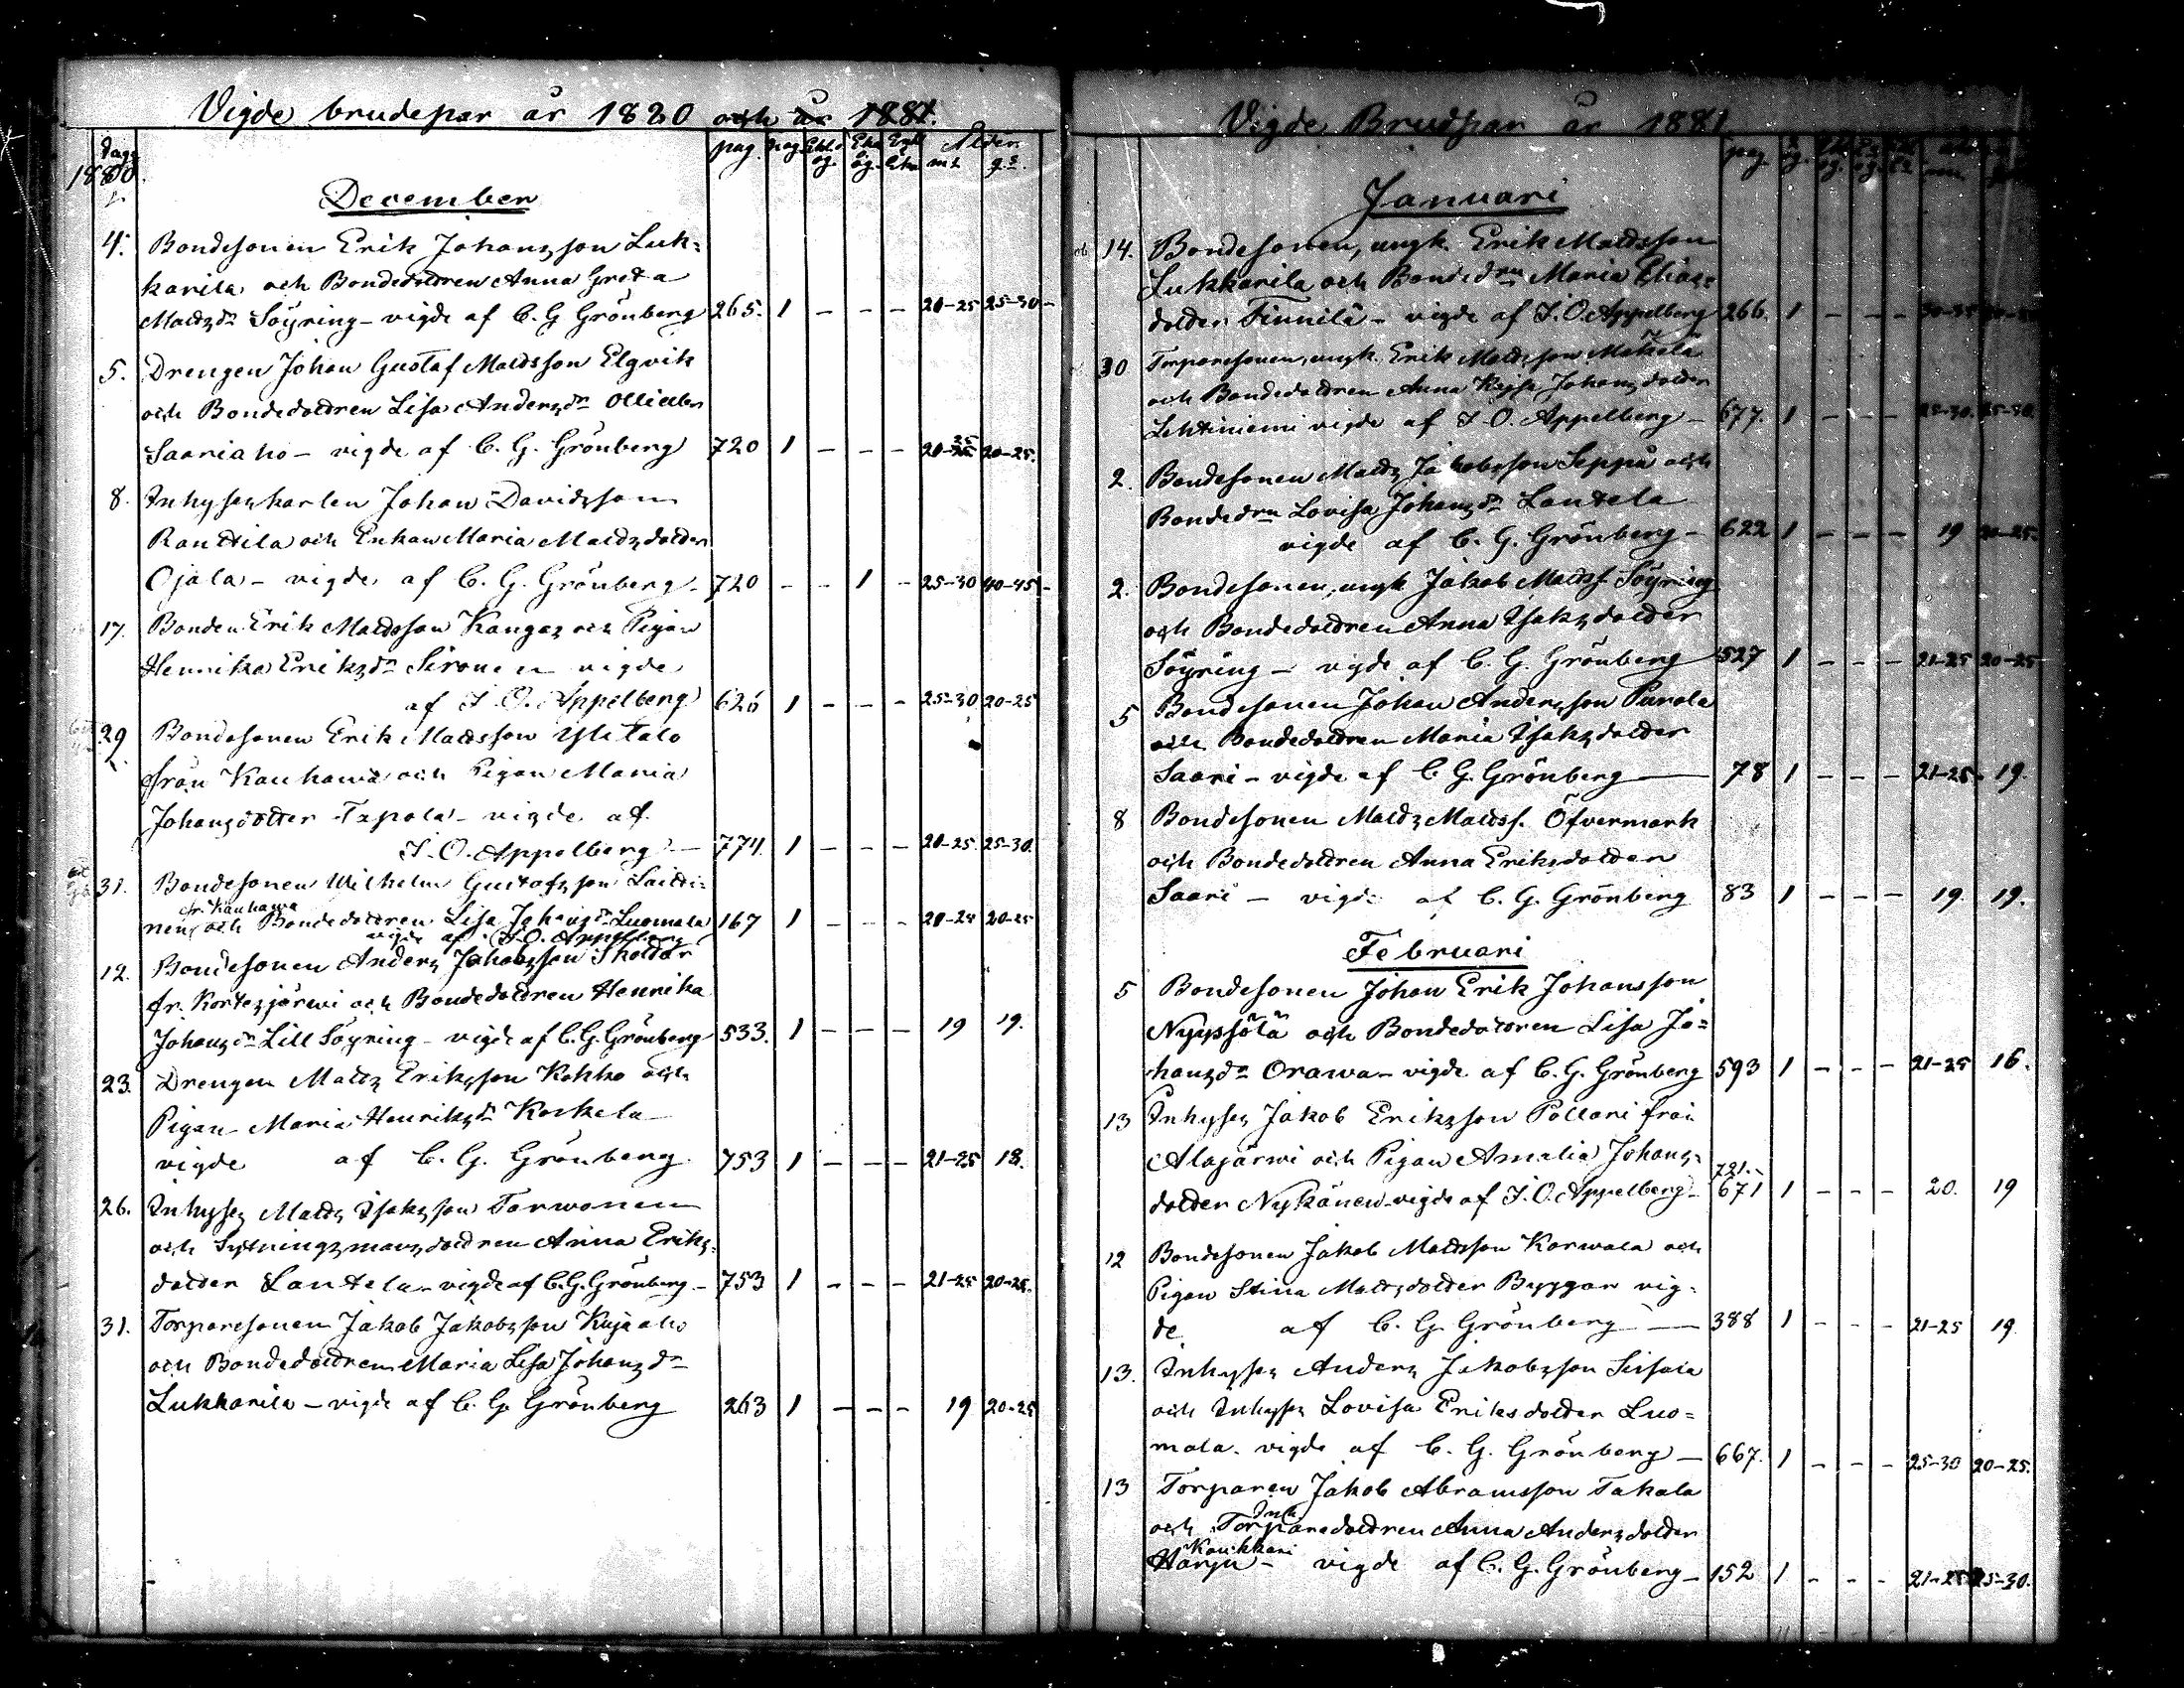 Vigde brudepar år 1880 och år 1881.
Dag pag. Ålder
1880. m. q.
December
4. Bondesonen Erik Johansson Luk=
karila och Bondedottren Anna Greta
Mattsdr Söyring - vigde af C. G. Grönberg 265. 1 - - - 20-25 25-30
5. Drengen Johan Gustaf Mattsson Elgvik
och Bondedottren Lisa Andersdr
Saariaho - vigde af C. G. Grönberg 720 1 - - - 20-25 20-25.
8. Inhyseskarlen Johan Davidsson
Ranttila och Enkan Maria Mattsdotter
Ojala - vigde af C. G. Grönberg - 720 - - 1 - 25-30 40-45
17. Bonden Erik Mattsson Kangas och Pigan
Henrika Eriksdr Sironen vigde
af J. O. Appelberg 626 1 - - - 25-30 20-25
29. Bondesonen Erik Mattsson Ylitalo
från Kauhawa och Pigan Maria
Johansdotter Tapola - vigde af
J. O. Appelberg - 774. 1 - - - 20-25. 25-30.
31. Bondesonen Wilhelm Gustafsson Laiti=
fr. Kauhawa
nen och Bondedottren Lisa Johansdr Luomala 167 1 - - - 20-25 20-25
vigde af J. O. Appelberg
12. Bondesonen Anders Jakobsson Skoldar
fr. Kortesjärwi och Bondedottren Henrika
Johansdr Lill Söyring - vigde af C. G. Grönberg 533. 1 - - - 19 19.
23. Drengen Matts Eriksson Kokko och
Pigan Maria Henriksdr Koskela
vigde af C. G. Grönberg. 753 1 - - - 21-25 18.
26. Inhyses Matts Isaksson Tarwonen
och Sytningsmansdottren Anna Eriks=
dotter Lantela - vigde af C. G. Grönberg - 753 1 - - - 21-25 20-25.
31. Torparesonen Jakob Jakobsson Kujaaho
och Bondedottren Maria Lisa Johansdr
Lukkarila - vigde af C. G. Grönberg 263 1 - - - 19 20-25
Vigde Brudpar år 1881
pag.
Januari
14. Bondesonen, ungk. Erik Mattsson
Lukkarila och Bondedrn Maria Elias=
dotter Finnilä - vigde af J. O. Appelberg 266. 1 - - -
30 Torparesonen, ungk. Erik Mattsson Mäkelä
och Bondedottren Anna Kajsa Johansdotter
Lehtiniemi vigde af J. O. Appelberg - 677. 1 - - - 25-30. 25-30.
2. Bondesonen Matts Jakobsson Seppä och
Bondedrn Lovisa Johansdr Lantela
vigde af C. G. Grönberg - 622 1 - - - 19 20-25.
2. Bondesonen, ungk Jakob Mattss. Söyring
och Bondedottren Anna Isaksdotter
Söyring - vigde af C. G. Grönberg 527 1 - - - 21-25 20-25
5 Bondesonen Johan Andersson Purola
och Bondedottren Maria Isaksdotter
Saari - vigde af C. G. Grönberg - 78 1 - - - 21-25 19.
8 Bondesonen Matts Mattss. Öfvermark
och Bondedottren Anna Eriksdotter
Saari - vigde af C. G. Grönberg 83 1 - - - 19. 19.
Februari
5 Bondesonen Johan Erik Johansson
Nyypsölä och Bondedottren Lisa Jo=
hansdr Orawa - vigde af C. G. Grönberg 593 1 - - - 21-25 16.
13 Inhyses Jakob Eriksson Pollari från
Alajärwi och Pigan Amalia Johans=
721.
dotter Nykänen - vigde af J. O. Appelberg - 671 1 - - - 20. 19
12 Bondesonen Jakob Mattsson Karwala och
Pigan Stina Mattsdotter Byggar vig=
de af C. G. Grönberg - 388 1 - - - 21-25 19
13. Inhyses Anders Jakobsson Sissala
och Inhyses Lovisa Eriksdotter Luo=
mala. vigde af C. G. Grönberg - 667. 1 - - - 25-30 20-25.
13 Torparen Jakob Abramsson Takala
Inh
och Torparedottren Anna Andersdotter
Kaukkari
Harju - vigde af C. G. Grönberg - 152 1 - - - 21-25 25-30.